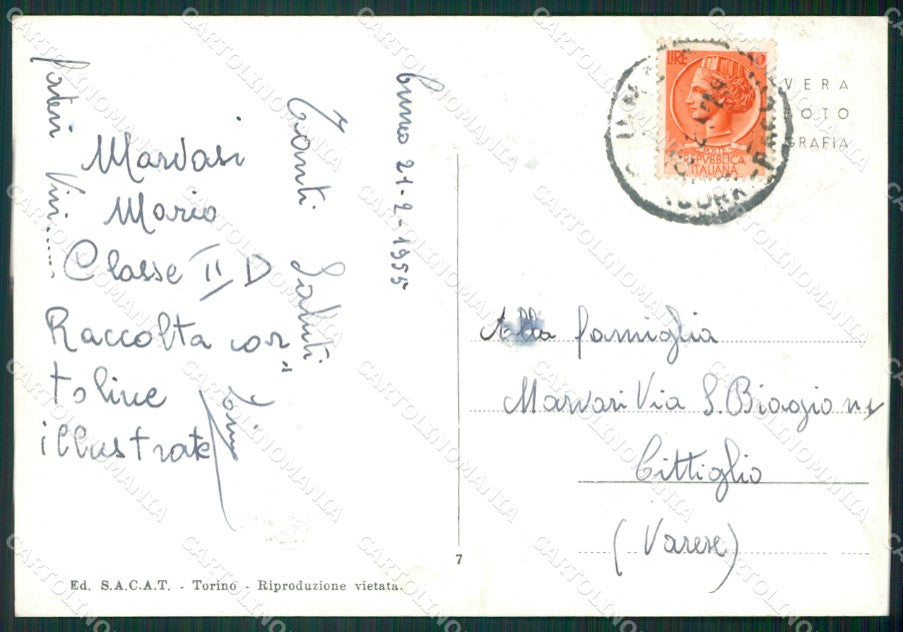 Cuneo 21-2-1955
Tanti Saluti
Marvasi
Mario
Classe II D
Raccolta car
toline
illustrate
Ed. S.A.C.A.T. - Torino - Riproduzione vietata.
7
LIRE
POSTE
REPVBBLICA
ITALIANA
VERA
FOTO
GRAFIA
Alla famiglia
Marvasi Via S. Biagio
Cittiglio
(Varese)
CARTOLINOMANIA